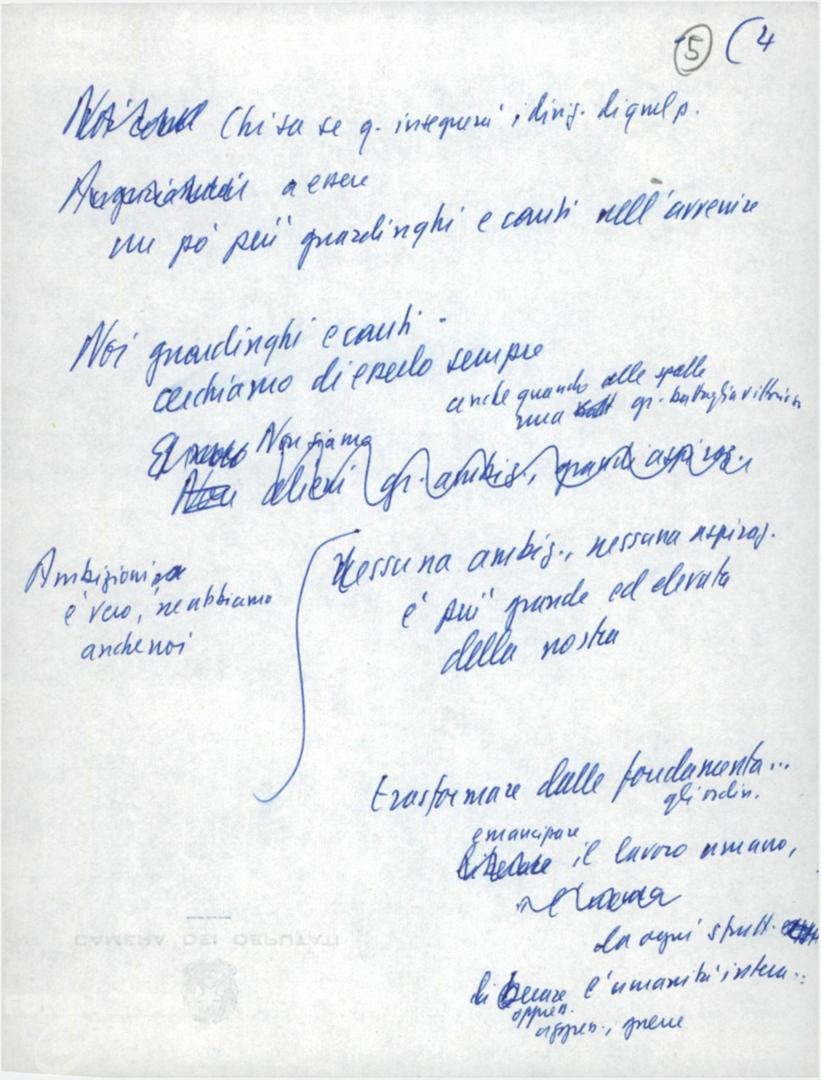 5 (4
Chi sa se q. insegnerà i dirig. di quel p.
a essere
un pò più guardinghi e cauti nell'avvenire
Noi guardinghi e cauti -
cerchiamo di esserlo sempre
anche quando alle spalle
una gr. battaglia vittorios
Non siamo
alieni gr. ambiz., grandi aspiraz.
Ambizioni
è vero, ne abbiamo
anche noi
Nessuna ambiz., nessuna aspiraz.
è più grande ed elevata
della nostra
trasformare dalle fondamenta...
gli ordin.
emancipare
liberare il lavoro umano,
da ogni sfrutt.
liberare l'umanità intera..
oppres.
aggres., guerre
CAMERA DEI DEPUTATI